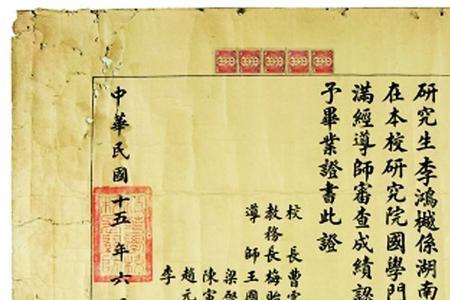 研究生李鴻樾係湖南
在本校研究院國學門
滿經導師審查成績認
予畢業證書此證
校長曹雲
教務長梅貽
導師王國
梁啓
陳寅
趙元
李
中華民國十五年六